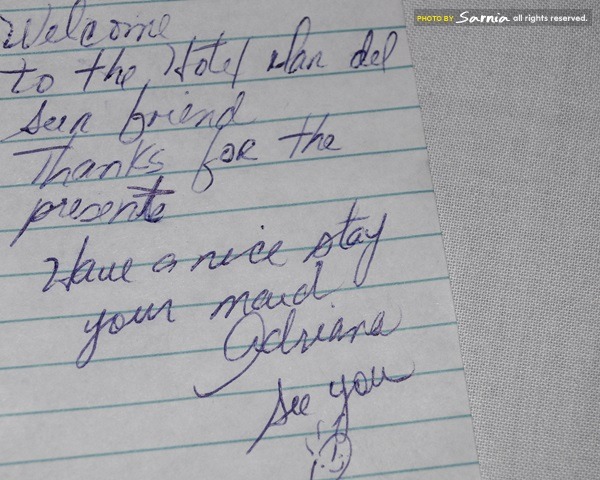 PHOTO BY Sarnia all rights reserved.
Welcome
to the Hotel Mar del
Sur friend
Thanks for the
presente
Have a nice stay
your maid
Adriana
See you